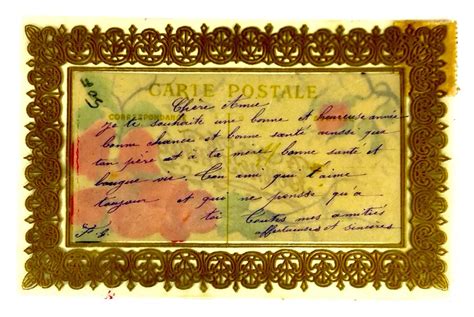 CARTE POSTALE
CORRESPONDANCE
Chère Amie
je te souhaite une bonne et heureuse année
bonne chance et bonne santé ainssi que
ton père et à ta mère bonne santé et
longue vie. Ton ami qui t'aime
toujour et qui ne penssé qu'a
toi Toutes mes amitiés
affectueuses et sincères
F. G